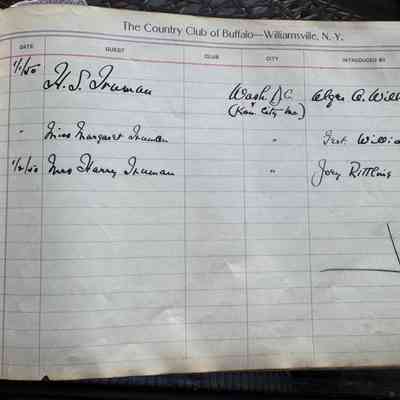 The Country Club of Buffalo—Williamsville, N. Y.
DATE GUEST CLUB CITY INTRODUCED BY
1/1/50 H. S. Truman Wash DC
(Kan. City Mo)
" Miss Margaret Truman "
1/2/50 Mrs Harry Truman " Joey Rittling